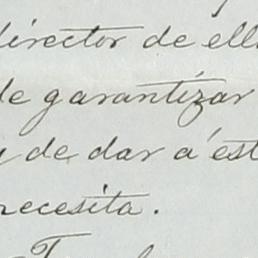 director de ell
de garantizar
y de dar a est
necesita.